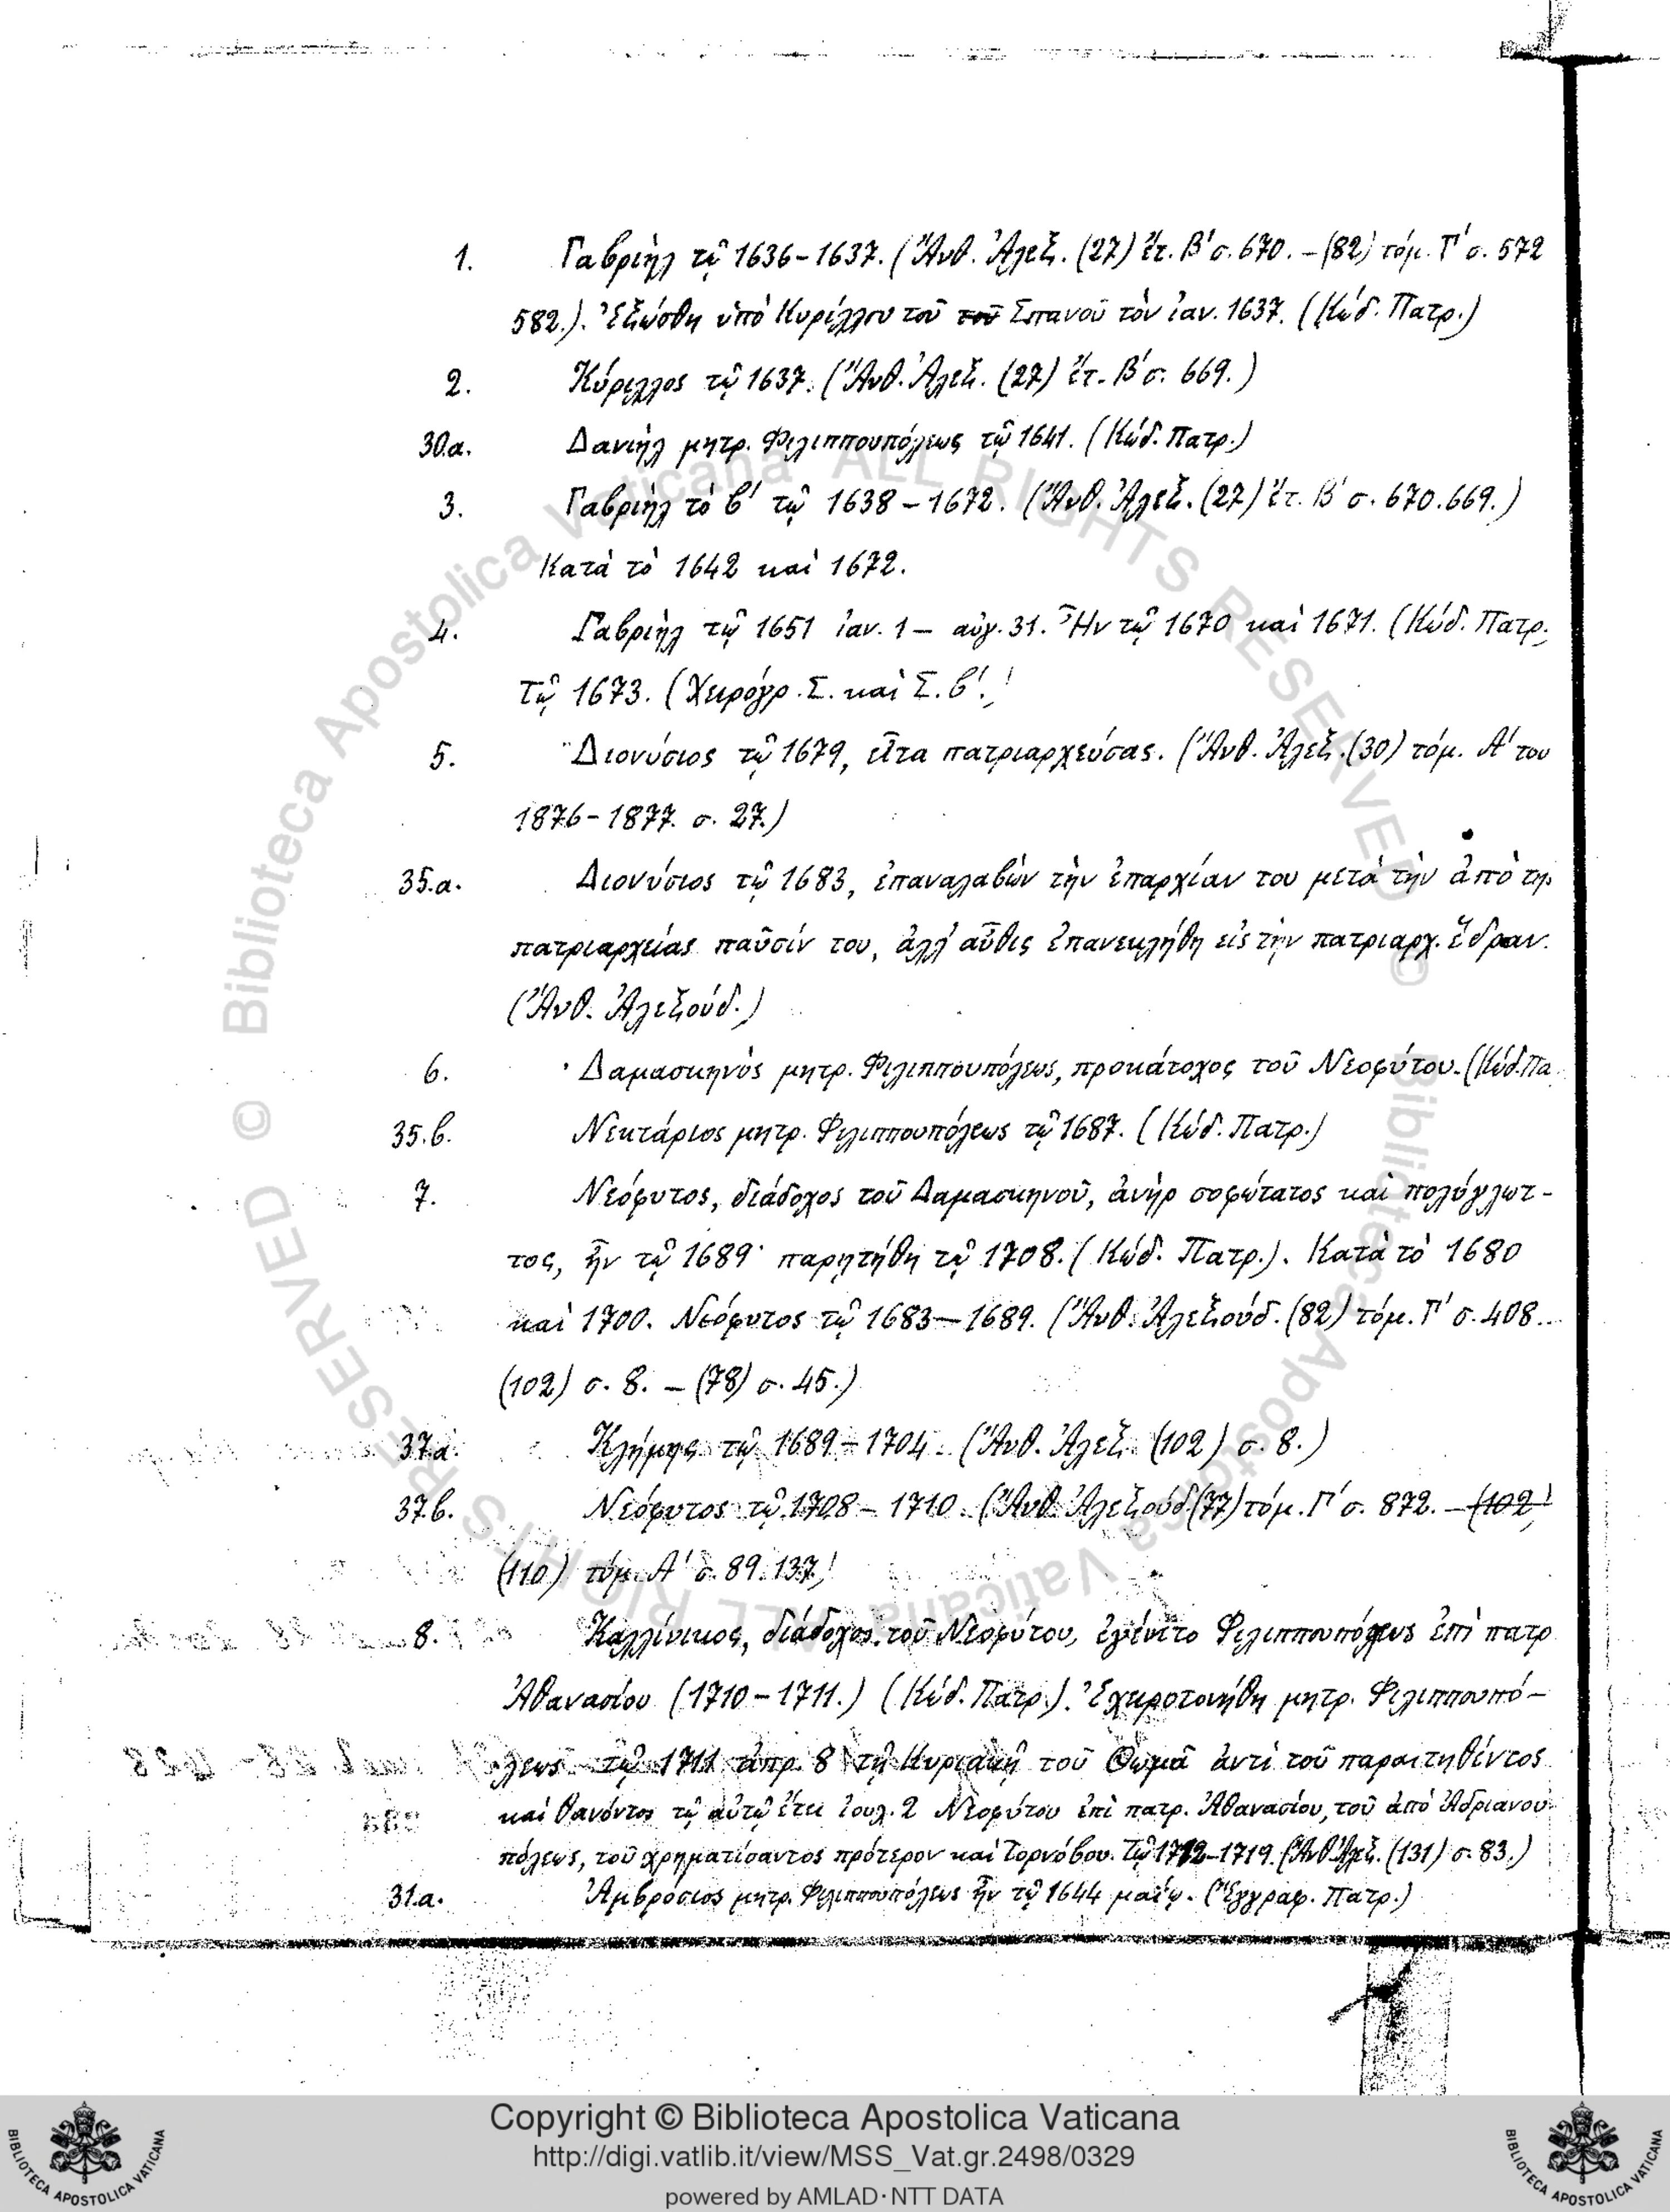 1. Γαβριὴλ τῷ 1636-1637. (Ἀνθ. Ἀλεξ. (27) ἔτ. Β' σ. 670. – (82) τόμ. Γ' σ. 572
582.). Ἐξώσθη ὑπὸ Κυρίλλου τοῦ τοῦ Σπανοῦ τὸν ἰαν. 1637. (Κώδ. Πατρ.)
2. Κύριλλος τῷ 1637. (Ἀνθ. Ἀλεξ. (27) ἔτ. Β' σ. 669.)
30.α. Δανιὴλ μητρ. Φιλιππουπόλεως τῷ 1641. (Κώδ. Πατρ.)
3. Γαβριὴλ τὸ β' τῷ 1638-1672. (Ἀνθ. Ἀλεξ. (27) ἔτ. Β' σ. 670.669.)
Κατὰ τὸ 1642 καὶ 1672.
4. Γαβριὴλ τῷ 1651 ἰαν. 1 – αὐγ. 31. Ἦν τῷ 1670 καὶ 1671. (Κώδ. Πατρ.
Τῷ 1673. (Χειρόγρ. Σ. καὶ Σ. β'.)
5. Διονύσιος τῷ 1679, εἶτα πατριαρχεύσας. (Ἀνθ. Ἀλεξ. (30) τόμ. Α' του
1876-1877. σ. 27.)
35.α. Διονύσιος τῷ 1683, ἐπαναλαβὼν τὴν ἐπαρχίαν του μετὰ τὴν ἀπὸ τη
πατριαρχείας παῦσίν του, ἀλλ' αὖθις ἐπανεκλήθη εἰς τὴν πατριαρχ. ἕδραν.
(Ἀνθ. Ἀλεξούδ.)
6. Δαμασκηνὸς μητρ. Φιλιππουπόλεως, προκάτοχος τοῦ Νεοφύτου. (Κώδ. Πα
35.β. Νεκτάριος μητρ. Φιλιππουπόλεως τῷ 1687. (Κώδ. Πατρ.)
7. Νεόφυτος, διάδοχος τοῦ Δαμασκηνοῦ, ἀνὴρ σοφώτατος καὶ πολύγλωτ-
τος, ἦν τῷ 1689· παρῃτήθη τῷ 1708. (Κώδ. Πατρ.). Κατὰ τὸ 1680
καὶ 1700. Νεόφυτος τῷ 1683-1689. (Ἀνθ. Ἀλεξούδ. (82) τόμ. Γ' σ. 408..
(102) σ. 8. – (78) σ. 45.)
37.α. Κλήμης τῷ 1689-1704. (Ἀνθ. Ἀλεξ. (102) σ. 8.)
37.β. Νεόφυτος τῷ 1708-1710. (Ἀνθ. Ἀλεξούδ. (77) τόμ. Γ' σ. 872. – (102)
(110) τόμ. Α' σ. 89.137.)
8. Καλλίνικος, διάδοχος τοῦ Νεοφύτου, ἐγένετο Φιλιππουπόλεως ἐπὶ πατρ
Ἀθανασίου (1710-1711.) (Κώδ. Πατρ.). Ἐχειροτονήθη μητρ. Φιλιππουπό-
λεως τῷ 1711 ἀπρ. 8 τῇ Κυριακῇ τοῦ Θωμᾶ ἀντὶ τοῦ παραιτηθέντος
καὶ θανόντος τῷ αὐτῷ ἔτει ἰουλ. 2 Νεοφύτου ἐπὶ πατρ. Ἀθανασίου, τοῦ ἀπὸ Ἀδριανου
πόλεως, τοῦ χρηματίσαντος πρότερον καὶ Τορνόβου. Τῷ 1712-1719. (Ἀνθ. Ἀλεξ. (131) σ. 83.)
31.α. Ἀμβρόσιος μητρ. Φιλιππουπόλεως ἦν τῷ 1644 μαΐῳ. (Ἔγγραφ. Πατρ.)
© Biblioteca Apostolica Vaticana ALL RIGHTS RESERVED
© Biblioteca Apostolica Vaticana ALL RIGHTS RESERVED
Copyright © Biblioteca Apostolica Vaticana
http://digi.vatlib.it/view/MSS_Vat.gr.2498/0329
powered by AMLAD·NTT DATA
BIBLIOTECA APOSTOLICA VATICANA
BIBLIOTECA APOSTOLICA VATICANA